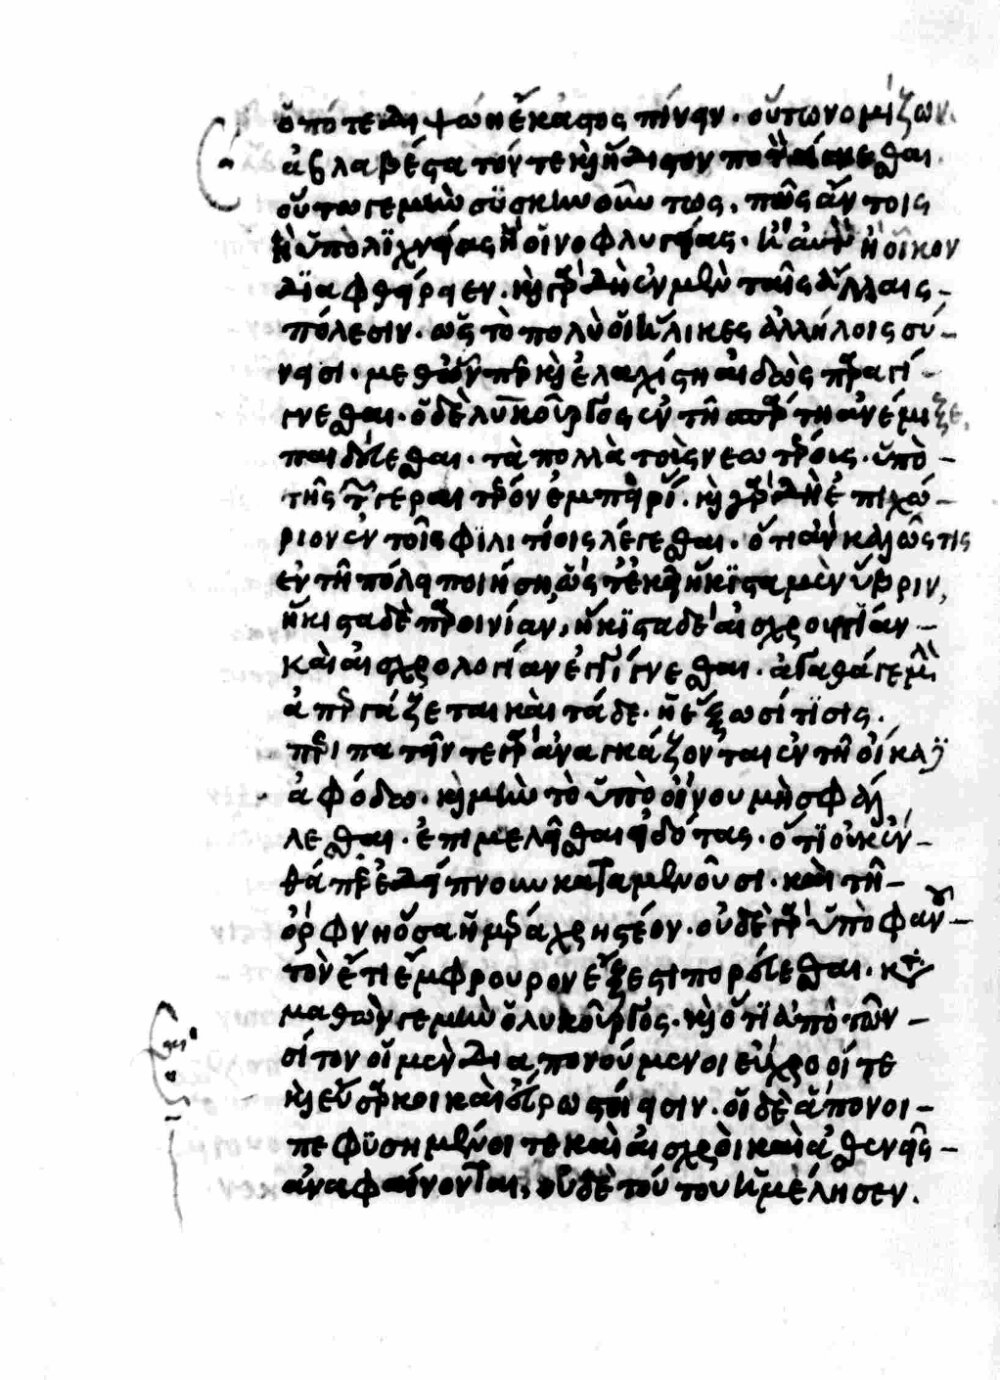 ὁπότε διψώη ἕκαστος πίνειν. οὕτω νομίζων
ἀβλαβέστατόν τε καὶ ἥδιστον ποτὸν γίγνεσθαι.
οὕτω γε μὴν συσκηνούντων, πῶς ἄν τις
ἢ ὑπὸ λιχνείας ἢ οἰνοφλυγίας. ἢ αὑτὸν ἢ οἶκον
διαφθείρειεν. καὶ γὰρ δὴ ἐν μὲν ταῖς ἄλλαις
πόλεσιν. ὡς τὸ πολὺ οἱ ἥλικες ἀλλήλοις σύ-
νεισι. μεθ' ὧνπερ καὶ ἐλαχίστη αἰδὼς παραγί-
γνεσθαι. ὁ δὲ λυκοῦργος ἐν τῇ σπάρτῃ ἀνέμιξε
παιδεύεσθαι. τὰ πολλὰ τοὺς νεωτέρους. ὑπὸ
τῆς τῶν γεραιτέρων ἐμπειρίας. καὶ γὰρ δὴ ἐπιχώ-
ριον ἐν τοῖς φιλιτίοις λέγεσθαι. ὅ τι ἂν καλῶς τις
ἐν τῇ πόλει ποιήσῃ, ὥστ' ἐκεῖ ἥκιστα μὲν ὕβριν,
ἥκιστα δὲ παροινίαν, ἥκιστα δὲ αἰσχρουργίαν
καὶ αἰσχρολογίαν ἐγγίγνεσθαι. ἀγαθά γε μὴν
ἀπεργάζεται καὶ τάδε. ἡ ἔξω σίτισις.
περιπατεῖν τε γὰρ ἀναγκάζονται ἐν τῇ οἴκαδε
ἀφόδῳ. καὶ μὴν τὸ ὑπὸ οἴνου μὴ σφάλ
λεσθαι. ἐπιμελεῖσθαι εἰδότας. ὅτι οὐκ ἔν-
θάπερ ἐδείπνουν καταμενοῦσι. καὶ τῇ
ὄρφνῃ ὅσα ἡμέρᾳ χρηστέον. οὐδὲ γὰρ ὑπὸ φανοῦ
τὸν ἔτι ἔμφρουρον ἔξεστι πορεύεσθαι. κατα
μαθών γε μὴν ὁ λυκοῦργος. καὶ ὅτι ἀπὸ τῶν
σίτων οἱ μὲν διαπονούμενοι εὔχροοί τε
καὶ εὔσαρκοι καὶ εὔρωστοί εἰσιν. οἱ δὲ ἄπονοι
πεφυσημένοι τε καὶ αἰσχροὶ καὶ ἀσθενεῖς
ἀναφαίνονται, οὐδὲ τούτου ἠμέλησεν.